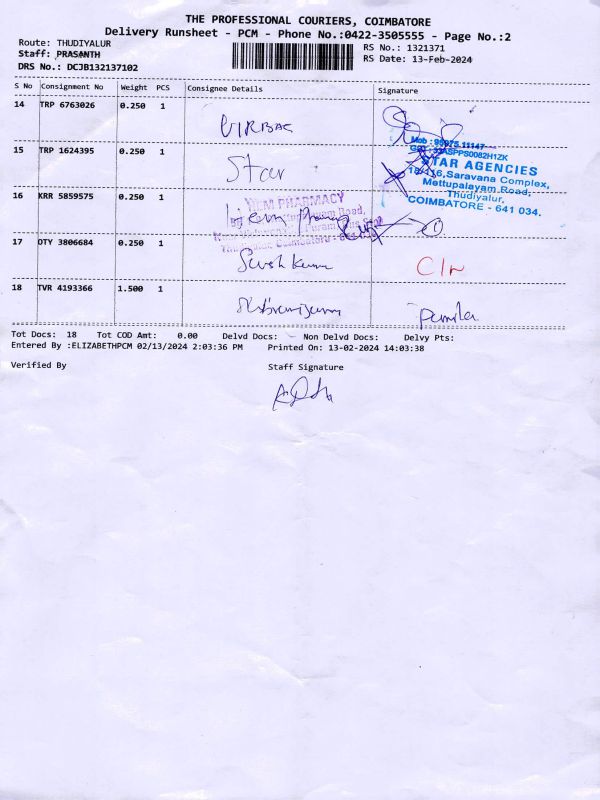 THE PROFESSIONAL COURIERS, COIMBATORE
Delivery Runsheet - PCM - Phone No.:0422-3505555 - Page No.:2
Route: THUDIYALUR
RS No.: 1321371
Staff: PRASANTH
RS Date: 13-Feb-2024
DRS No.: DCJB132137102
S No Consignment No Weight PCS Consignee Details Signature
14 TRP 6763026 0.250 1 VIRBAC
15 TRP 1624395 0.250 1 Star
Mob : 95975 11147
STAR AGENCIES
18/116,Saravana Complex,
Mettupalayam Road,
Thudiyalur,
COIMBATORE - 641 034.
16 KRR 5859575 0.250 1
PHARMACY
17 OTY 3806684 0.250 1
18 TVR 4193366 1.500 1
Tot Docs: 18 Tot COD Amt: 0.00 Delvd Docs: Non Delvd Docs: Delvy Pts:
Entered By :ELIZABETHPCM 02/13/2024 2:03:36 PM Printed On: 13-02-2024 14:03:38
Verified By Staff Signature